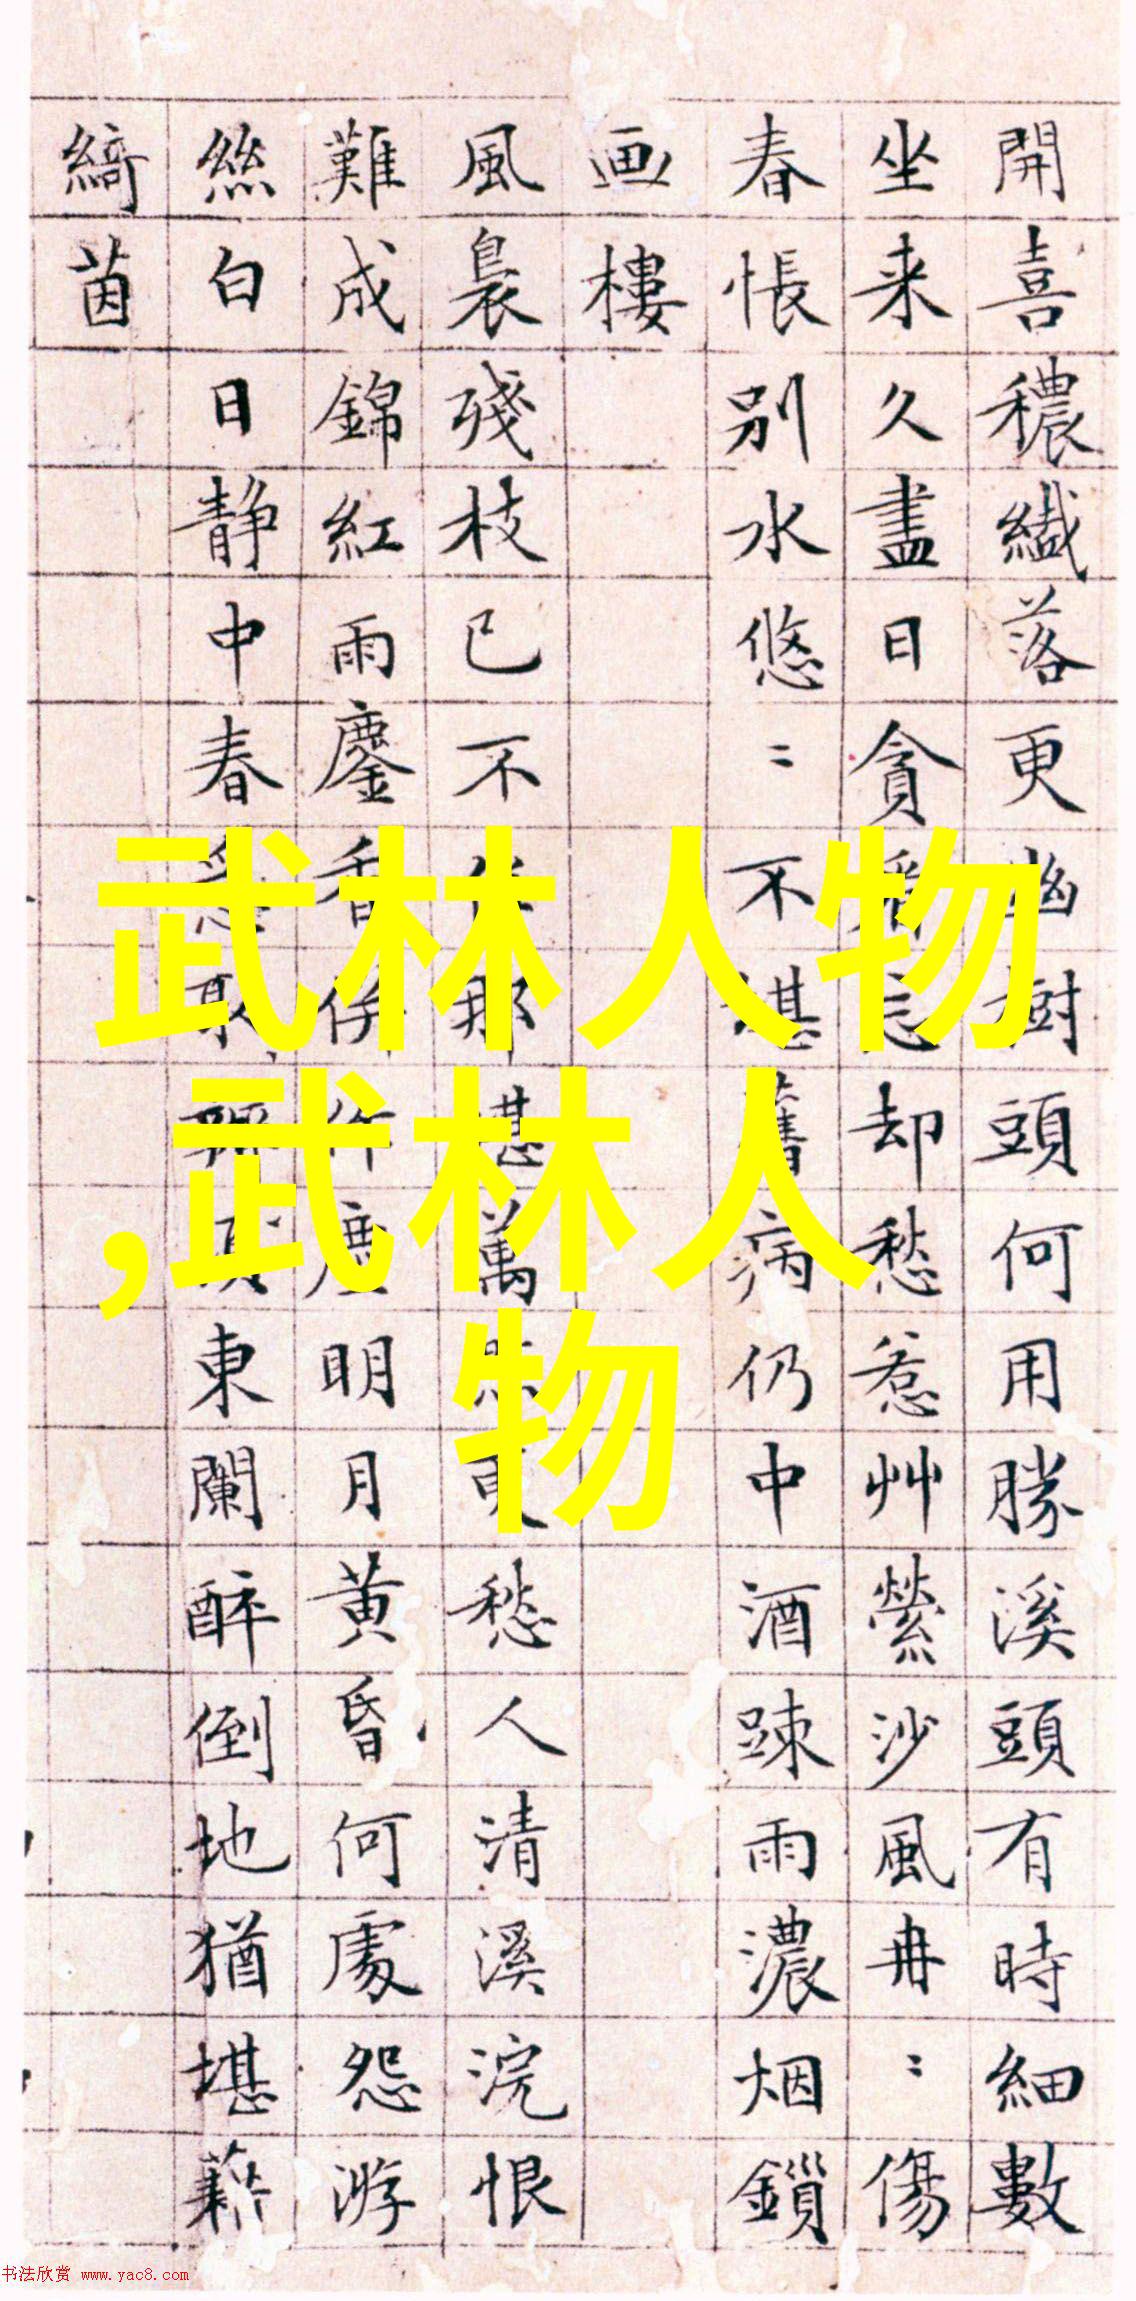 開喜穠纖落更幽頭何用勝溪頭有時細數
坐来久盡日貪忘却愁惹艸縈沙風冉〻傷
春悵別水悠〻不堪舊病仍中酒踈雨濃烟鎖
画樓
風裊殘枝已不那堪萬更愁人清溪浣恨
難成錦紅雨鏖香併作塵明月黄昏何處怨游
絲白日静中春東闌醉倒地猶堪藉
綺茵
武林人物
,武林人
物
书法欣赏 www.yac8.com